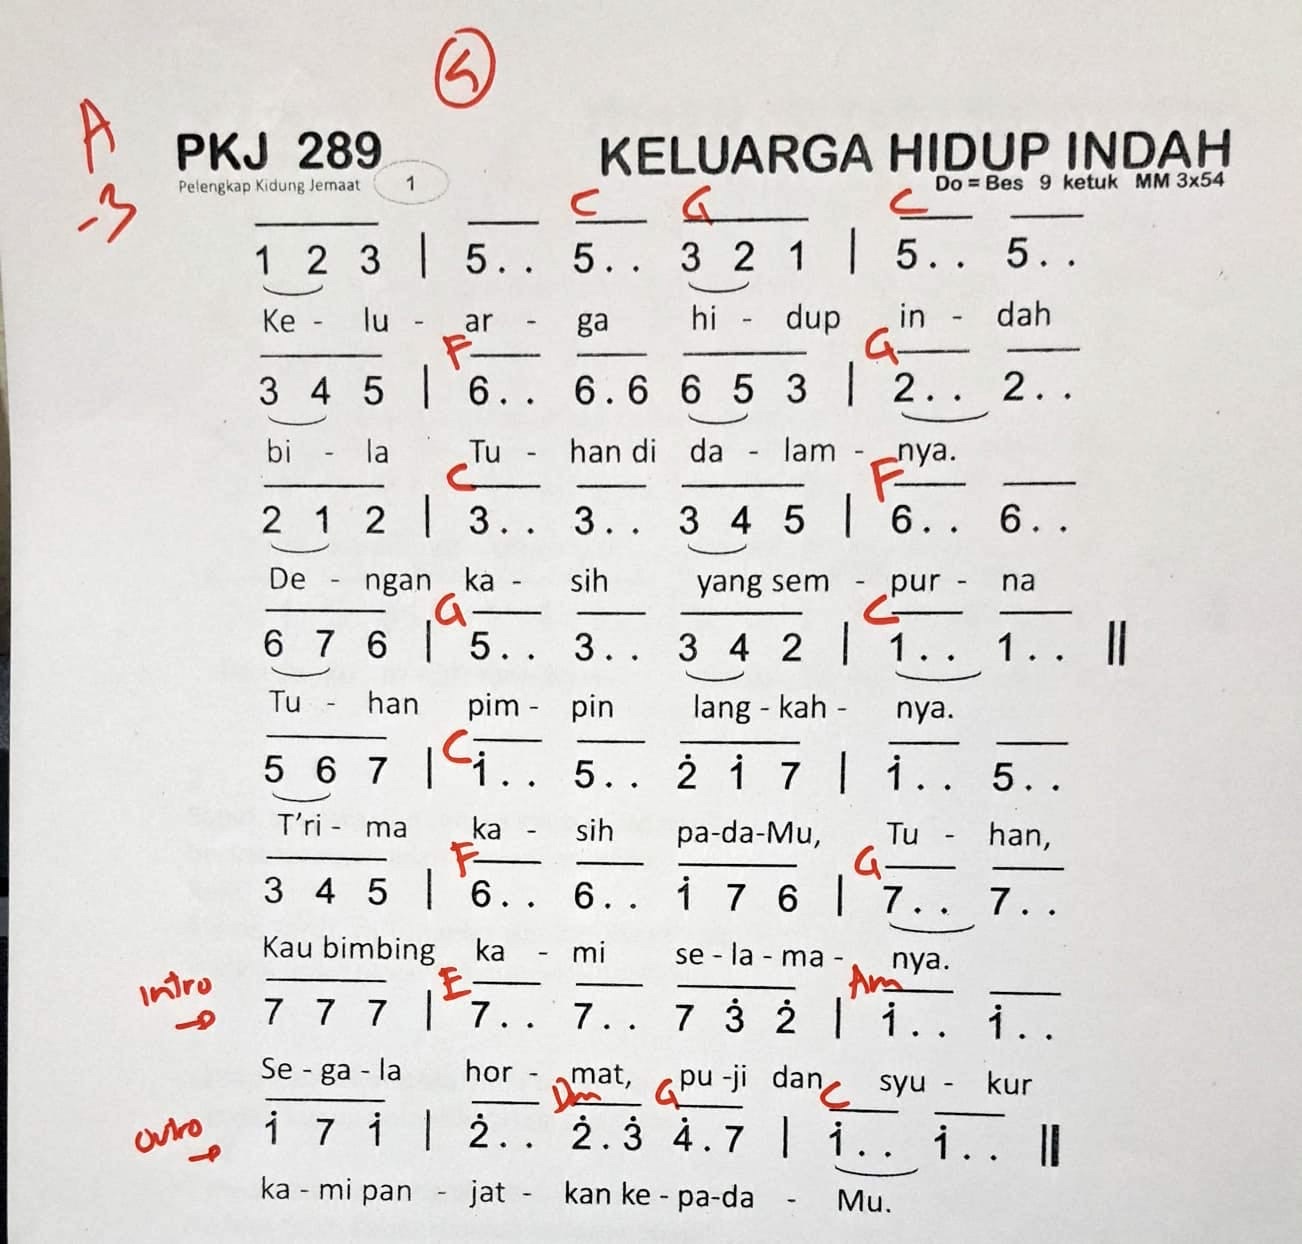 5
A
-3
PKJ 289
KELUARGA HIDUP INDAH
Pelengkap Kidung Jemaat 1
Do = Bes 9 ketuk MM 3x54
C G C
1 2 3 | 5 . . 5 . . 3 2 1 | 5 . . 5 . .
Ke - lu - ar - ga hi - dup in - dah
F G
3 4 5 | 6 . . 6 . 6 6 5 3 | 2 . . 2 . .
bi - la Tu - han di da - lam - nya.
C F
2 1 2 | 3 . . 3 . . 3 4 5 | 6 . . 6 . .
De - ngan ka - sih yang sem - pur - na
G C
6 7 6 | 5 . . 3 . . 3 4 2 | 1 . . 1 . . ||
Tu - han pim - pin lang - kah - nya.
C
5 6 7 | i . . 5 . . 2̇ i 7 | i . . 5 . .
T'ri - ma ka - sih pa-da-Mu, Tu - han,
F G
3 4 5 | 6 . . 6 . . i 7 6 | 7 . . 7 . .
Kau bimbing ka - mi se - la - ma - nya.
Intro → E Am
7 7 7 | 7 . . 7 . . 7 3̇ 2̇ | i . . i . .
Se - ga - la hor - mat, pu -ji dan syu - kur
Dm G C
Outro → i 7 i | 2̇ . . 2̇ . 3̇ 4̇ . 7 | i . . i . . ||
ka - mi pan - jat - kan ke - pa-da - Mu.